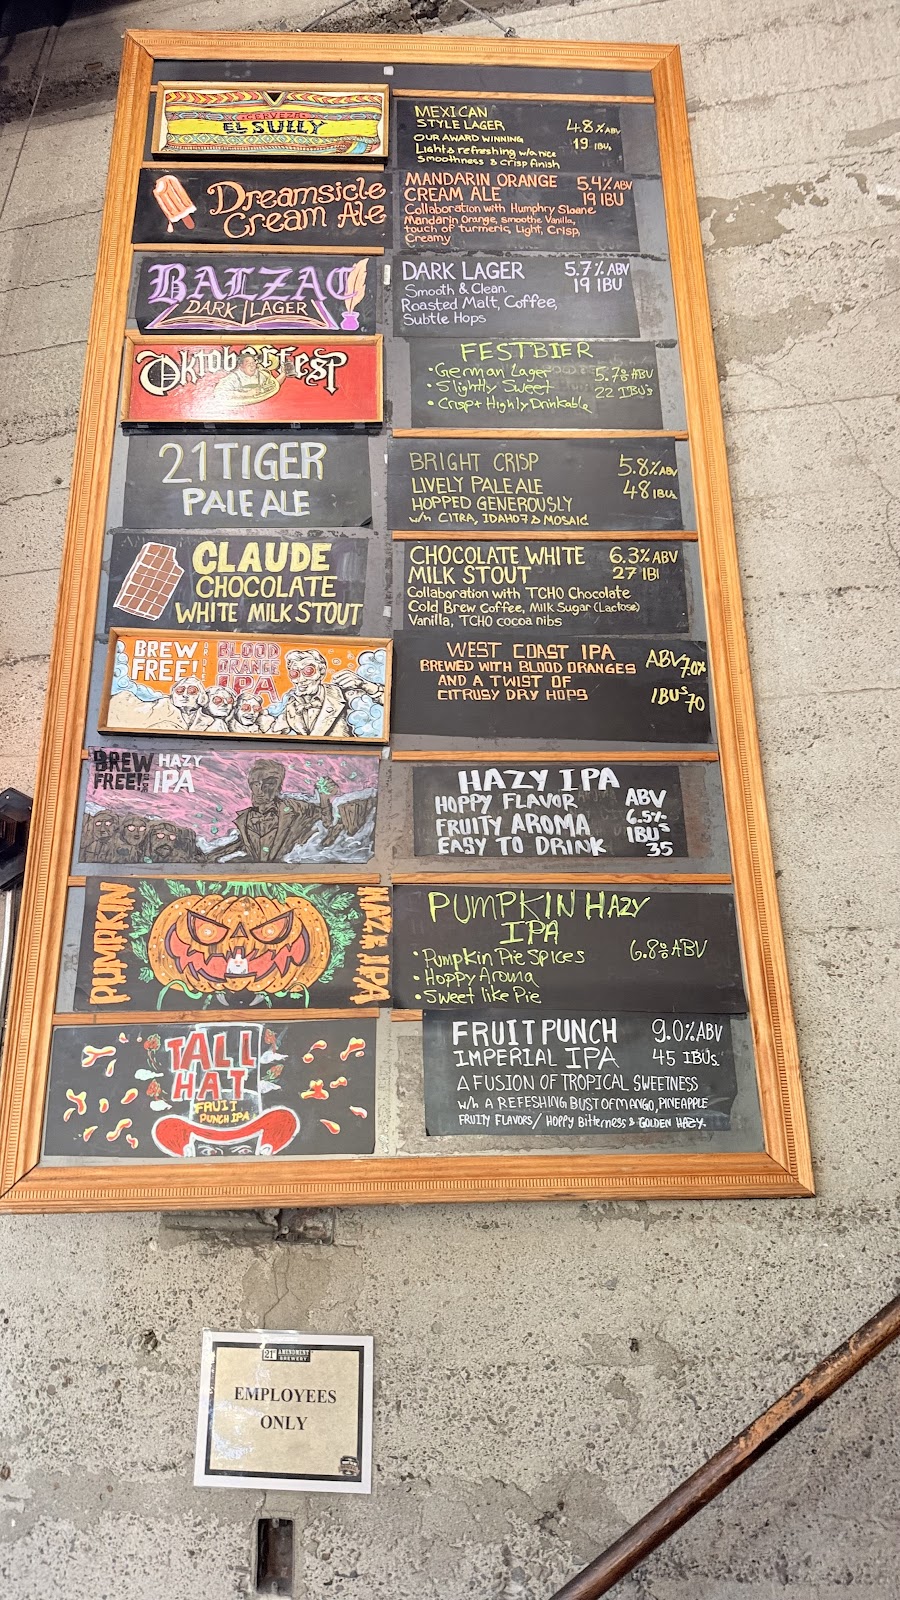 CERVEZA
EL SULLY
MEXICAN
STYLE LAGER
OUR AWARD WINNING
Light & refreshing w/a nice
smoothness & crisp finish
4.8% ABV
19 IBUs
Dreamsicle
Cream Ale
MANDARIN ORANGE
CREAM ALE
5.4% ABV
19 IBU
Collaboration with Humphry Sloane
Mandarin Orange, smoothe Vanilla,
touch of turmeric, Light, Crisp,
Creamy
BALZAC
DARK LAGER
DARK LAGER
5.7% ABV
19 IBU
Smooth & Clean
Roasted Malt, Coffee,
Subtle Hops
Oktoberfest
FESTBIER
• German Lager
• Slightly Sweet
• Crisp + Highly Drinkable
5.7% ABV
22 IBU's
21 TIGER
PALE ALE
BRIGHT CRISP
LIVELY PALE ALE
HOPPED GENEROUSLY
w/h CITRA, IDAHO 7 & MOSAIC
5.8% ABV
48 IBUs
CLAUDE
CHOCOLATE
WHITE MILK STOUT
CHOCOLATE WHITE
MILK STOUT
6.3% ABV
27 IBI
Collaboration with TCHO Chocolate
Cold Brew Coffee, Milk Sugar (Lactose)
Vanilla, TCHO cocoa nibs
BREW
FREE!
OR DIE
BLOOD
ORANGE
IPA
WEST COAST IPA
BREWED WITH BLOOD ORANGES
AND A TWIST OF
CITRUSY DRY HOPS
ABV 7.0%
IBU's 70
BREW
FREE!
OR DIE
HAZY
IPA
HAZY IPA
HOPPY FLAVOR
FRUITY AROMA
EASY TO DRINK
ABV
6.5%
IBU's
35
PUMPKIN
HAZE IPA
PUMPKIN HAZY
IPA
• Pumpkin Pie Spices
• Hoppy Aroma
• Sweet like Pie
6.8% ABV
TALL
HAT
FRUIT
PUNCH IPA
FRUIT PUNCH
IMPERIAL IPA
9.0% ABV
45 IBUs
A FUSION OF TROPICAL SWEETNESS
w/h A REFESHING BUST OF MANGO, PINEAPPLE
FRUITY FLAVORS / HOPPY Bitterness & GOLDEN HAZY.
21ST AMENDMENT
BREWERY
EMPLOYEES
ONLY